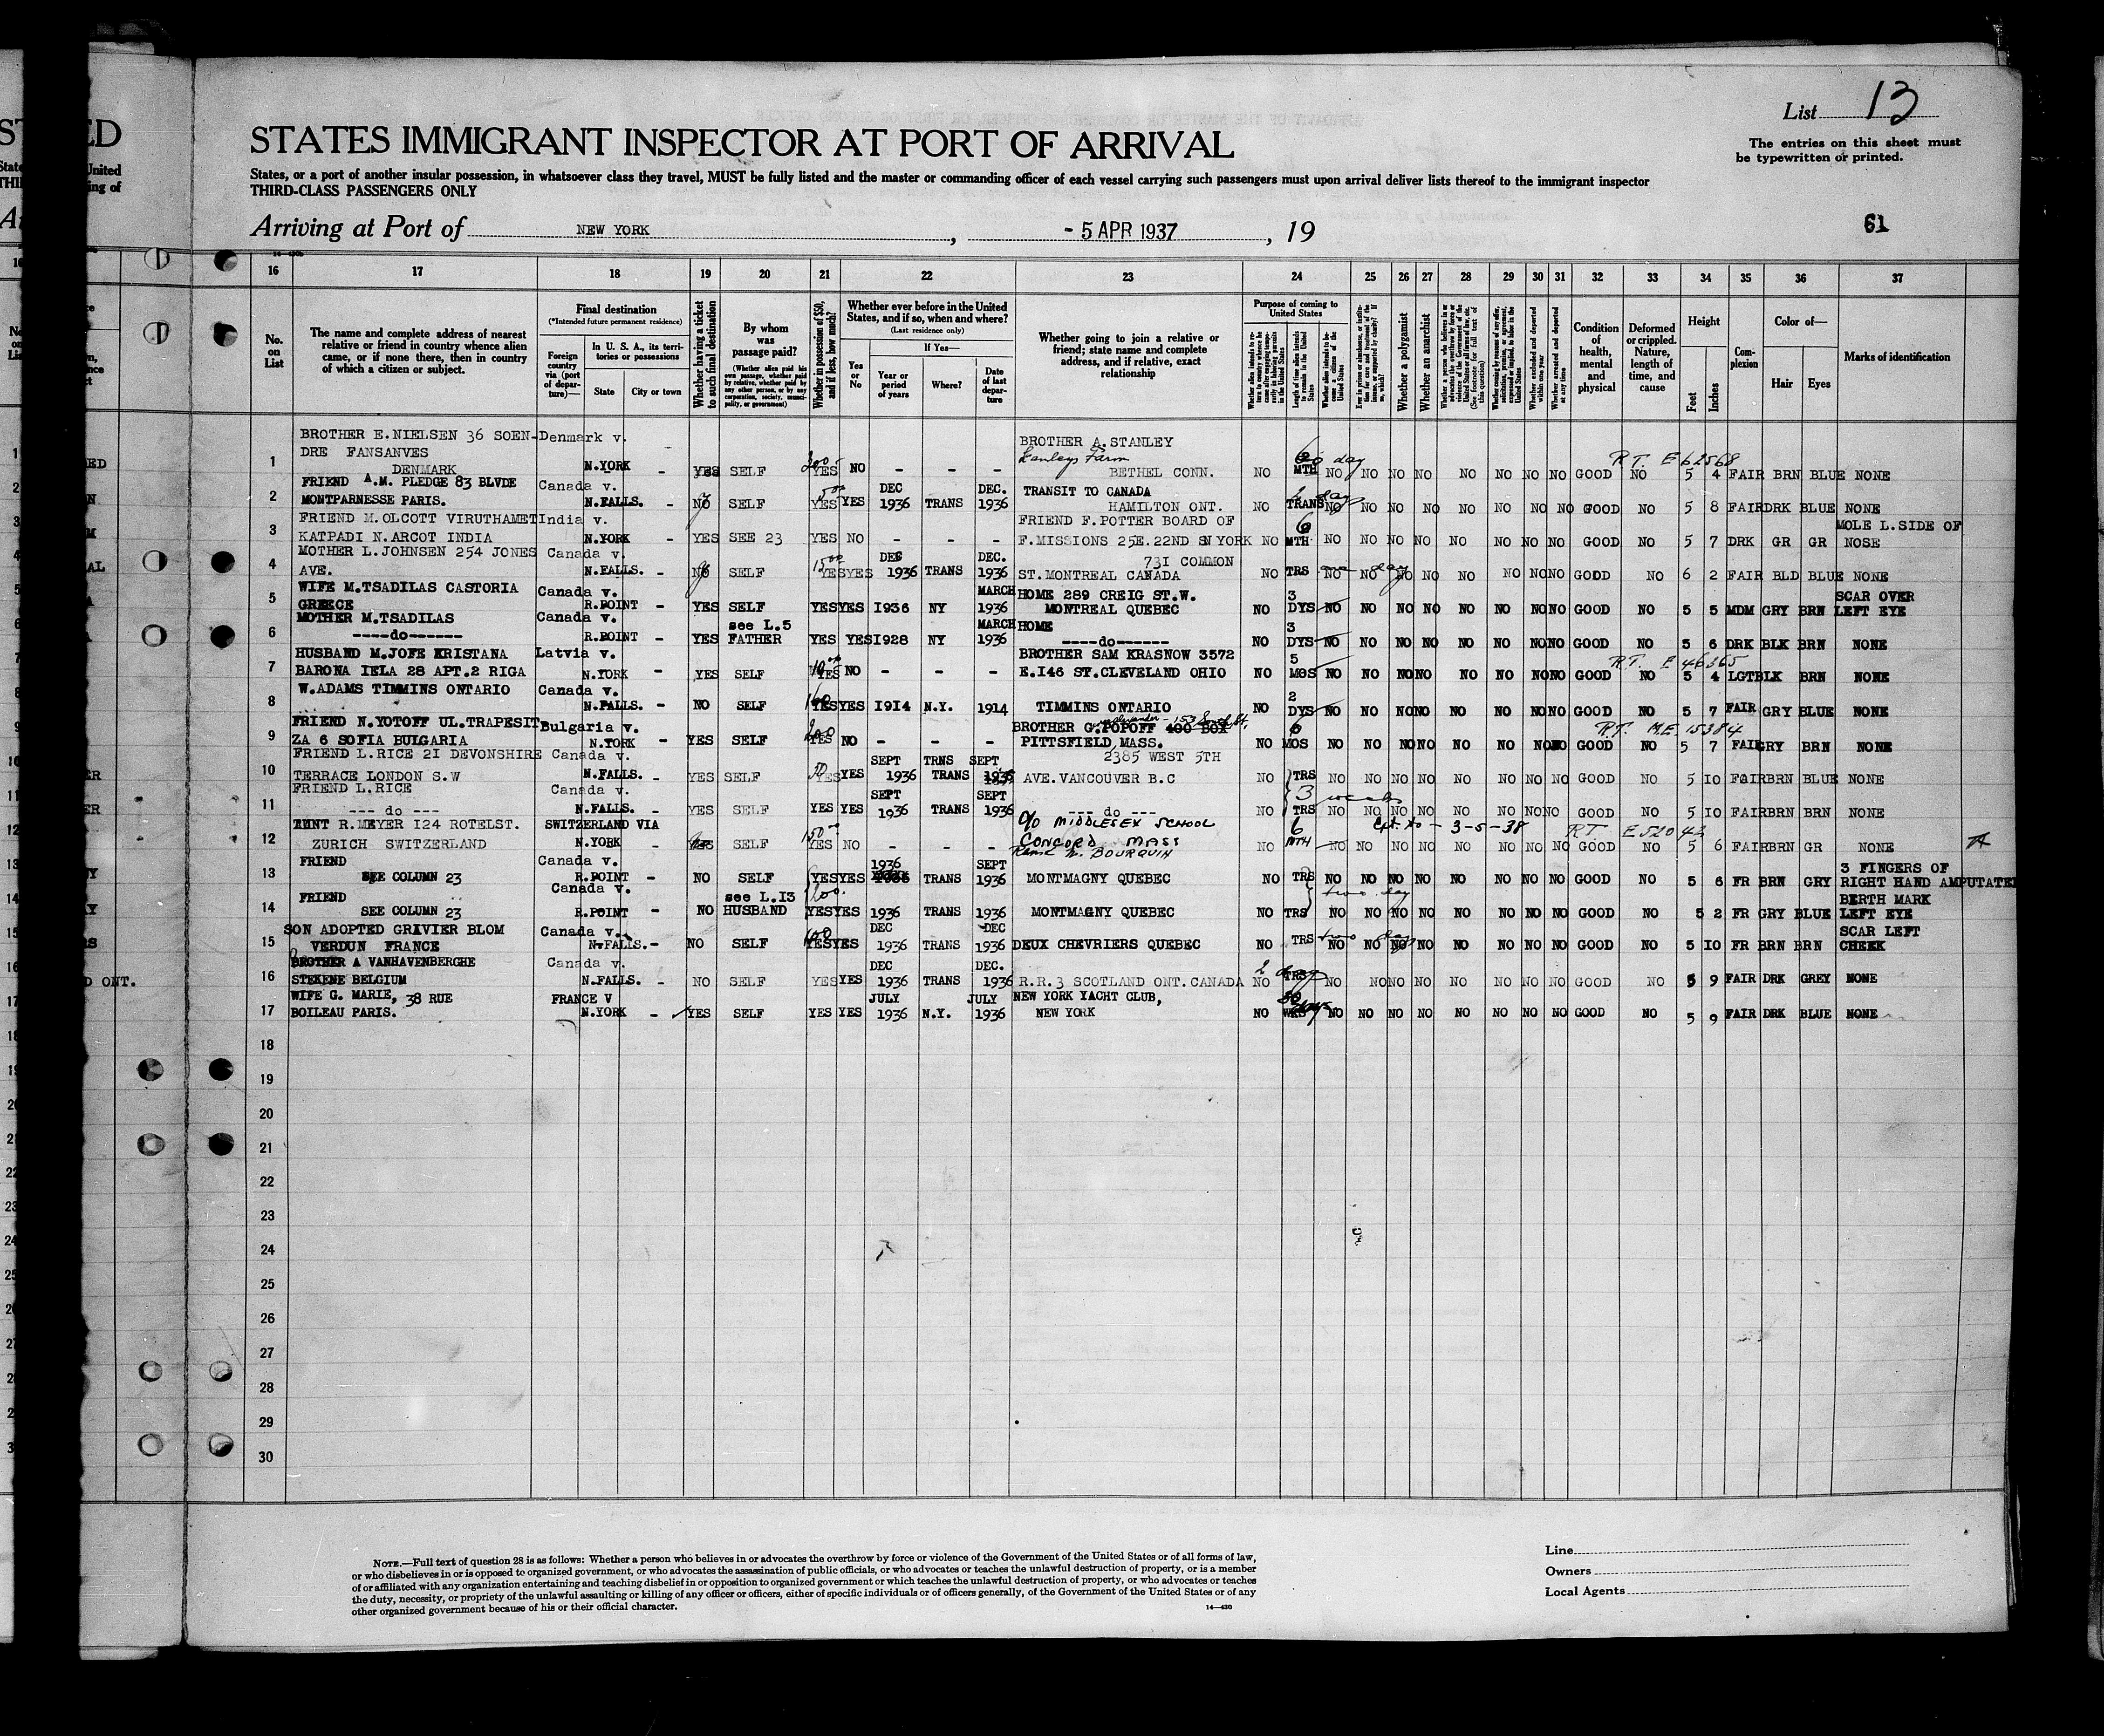 List 13
STATES IMMIGRANT INSPECTOR AT PORT OF ARRIVAL
The entries on this sheet must
be typewritten or printed.
States, or a port of another insular possession, in whatsoever class they travel, MUST be fully listed and the master or commanding officer of each vessel carrying such passengers must upon arrival deliver lists thereof to the immigrant inspector
THIRD-CLASS PASSENGERS ONLY
Arriving at Port of NEW YORK, - 5 APR 1937, 19
61
16 17 18 19 20 21 22 23 24 25 26 27 28 29 30 31 32 33 34 35 36 37
No. on List
The name and complete address of nearest relative or friend in country whence alien came, or if none there, then in country of which a citizen or subject.
Final destination
(*Intended future permanent residence)
Foreign country via (port of departure)—
In U. S. A., its territories or possessions
State
City or town
Whether having a ticket to such final destination
By whom was passage paid?
(Whether alien paid his own passage, whether paid by relative, whether paid by any other person, or by any corporation, society, municipality, or government)
Whether in possession of $50, and if less, how much?
Whether ever before in the United States, and if so, when and where?
(Last residence only)
Yes or No
If Yes—
Year or period of years
Where?
Date of last departure
Whether going to join a relative or friend; state name and complete address, and if relative, exact relationship
Purpose of coming to United States
Length of time alien intends to remain in the United States
Whether a polygamist
Whether an anarchist
Whether arrested and deported within one year
Whether arrested and deported at any time
Condition of health, mental and physical
Deformed or crippled. Nature, length of time, and cause
Height
Feet
Inches
Complexion
Color of—
Hair
Eyes
Marks of identification
1 BROTHER E.NIELSEN 36 SOEN-DRE FANSANVES DENMARK Denmark v. N.YORK - YES SELF 200 YES NO - - - BROTHER A.STANLEY BETHEL CONN. NO 6 MTH NO NO NO NO NO NO NO NO GOOD NO R.T. E62568 5 4 FAIR BRN BLUE NONE
2 FRIEND A.M. PLEDGE 83 BLVDE MONTPARNESSE PARIS. Canada v. N.FALLS. - NO SELF YES YES DEC 1936 TRANS DEC. 1936 TRANSIT TO CANADA HAMILTON ONT. NO TRANS NO NO NO NO NO NO NO NO GOOD NO 5 8 FAIR DRK BLUE NONE
3 FRIEND M.OLCOTT VIRUTHAMET KATPADI N.ARCOT INDIA India v. N.YORK - YES SEE 23 YES NO - - - FRIEND F.POTTER BOARD OF F.MISSIONS 25E.22ND S N YORK NO 6 MTH NO NO NO NO NO NO NO NO GOOD NO 5 7 DRK GR GR MOLE L.SIDE OF NOSE
4 MOTHER L.JOHNSEN 254 JONES AVE. Canada v. N.FALLS. - NO SELF YES YES DEC 1936 TRANS DEC. 1936 731 COMMON ST.MONTREAL CANADA NO TRS NO NO NO NO NO NO NO NO GOOD NO 6 2 FAIR BLD BLUE NONE
5 WIFE M.TSADILAS CASTORIA GREECE Canada v. R.POINT - YES SELF YES YES I936 NY MARCH 1936 HOME 289 CREIG ST.W. MONTREAL QUEBEC NO 3 DYS NO NO NO NO NO NO NO NO GOOD NO 5 5 MDM GRY BRN SCAR OVER LEFT EYE
6 MOTHER M.TSADILAS ----do------ Canada v. R.POINT - YES see L.5 FATHER YES YES I928 NY MARCH 1936 HOME ----do------ NO 3 DYS NO NO NO NO NO NO NO NO GOOD NO 5 6 DRK BLK BRN NONE
7 HUSBAND M.JOFE KRISTANA BARONA IELA 28 APT.2 RIGA Latvia v. N.YORK YES SELF YES NO - - - BROTHER SAM KRASNOW 3572 E.I46 ST.CLEVELAND OHIO NO 5 MOS NO NO NO NO NO NO NO NO GOOD NO R.T. E 46365 5 4 LGT BLK BRN NONE
8 W.ADAMS TIMMINS ONTARIO Canada v. N.FALLS. - NO SELF YES YES I9I4 N.Y. 1914 TIMMINS ONTARIO NO 2 DYS NO NO NO NO NO NO NO NO GOOD NO 5 7 FAIR GRY BLUE NONE
9 FRIEND N.YOTOFF UL.TRAPESIT ZA 6 SOFIA BULGARIA Bulgaria v. N.YORK - YES SELF 200 YES NO - - - BROTHER G.POPOFF 400 BOX PITTSFIELD,MASS. NO 6 MOS NO NO NO NO NO NO NO NO GOOD NO R.T. M.E. 15384 5 7 FAIR GRY BRN NONE
10 FRIEND L.RICE 2I DEVONSHIRE TERRACE LONDON S.W Canada v. N.FALLS. - YES SELF 50 YES YES SEPT 1936 TRNS TRANS SEPT 1936 2385 WEST 5TH AVE.VANCOUVER B.C NO TRS NO NO NO NO NO NO NO NO GOOD NO 5 IO FAIR BRN BLUE NONE
11 FRIEND L.RICE --- do --- Canada v. N.FALLS. - YES SELF YES YES SEPT 1936 TRANS SEPT 1936 --- do --- NO 3 weeks TRS NO NO NO NO NO NO NO NO GOOD NO 5 IO FAIR BRN BRN NONE
12 AUNT R.MEYER I24 ROTELST. ZURICH SWITZERLAND SWITZERLAND VIA N.YORK - YES SELF YES NO - - - c/o MIDDLESEX SCHOOL CONCORD MASS BOURQUIN NO 6 MTH NO NO NO NO NO NO NO NO 3-5-38 GOOD NO RT E52042 5 6 FAIR BRN GR NONE
13 FRIEND SEE COLUMN 23 Canada v. R.POINT - NO SELF YES YES 1936 TRANS SEPT 1936 MONTMAGNY QUEBEC NO TRS NO NO NO NO NO NO NO NO GOOD NO 5 6 FR BRN GRY 3 FINGERS OF RIGHT HAND AMPUTATED
14 FRIEND SEE COLUMN 23 Canada v. R.POINT - NO see L.I3 HUSBAND YES YES 1936 TRANS 1936 MONTMAGNY QUEBEC NO TRS two day NO NO NO NO NO NO NO NO GOOD NO 5 2 FR GRY BLUE BERTH MARK LEFT EYE
15 SON ADOPTED GRIVIER BLOM VERDUN FRANCE Canada v. N.FALLS. - NO SELF 100 YES YES DEC 1936 TRANS DEC 1936 DEUX CHEVRIERS QUEBEC NO TRS two days NO NO NO NO NO NO NO NO GOOD NO 5 IO FR BRN BRN SCAR LEFT CHEEK
16 BROTHER A VANHAVENBERGHE STEKENE BELGIUM Canada v. N.FALLS. - NO SELF YES YES DEC 1936 TRANS DEC. 1936 R.R.3 SCOTLAND ONT.CANADA NO TRS NO NO NO NO NO NO NO NO GOOD NO 5 9 FAIR DRK GREY NONE
17 WIFE G. MARIE, 38 RUE BOILEAU PARIS. FRANCE V N.YORK - YES SELF YES YES JULY 1936 N.Y. JULY 1936 NEW YORK YACHT CLUB, NEW YORK NO NO NO NO NO NO NO NO NO GOOD NO 5 9 FAIR DRK BLUE NONE
18
19
20
21
22
23
24
25
26
27
28
29
30
NOTE.—Full text of question 28 is as follows: Whether a person who believes in or advocates the overthrow by force or violence of the Government of the United States or of all forms of law,
or who disbelieves in or is opposed to organized government, or who advocates the assassination of public officials, or who advocates or teaches the unlawful destruction of property, or is a member
of or affiliated with any organization entertaining and teaching disbelief in or opposition to organized government or which teaches the unlawful destruction of property, or who advocates or teaches
the duty, necessity, or propriety of the unlawful assaulting or killing of any officer or officers, either of specific individuals or of officers generally, of the Government of the United States or of any
other organized government because of his or their official character.
14—430
Line
Owners
Local Agents